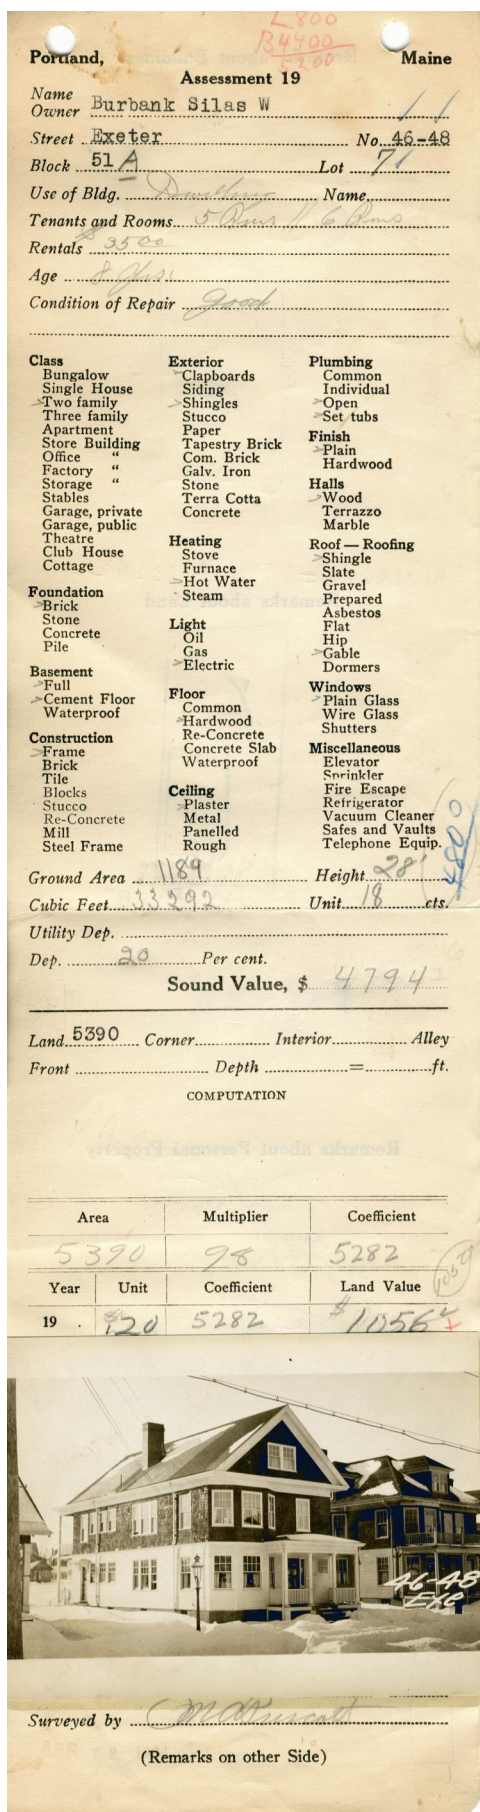 L 800
B 4400
5200
Portland, Maine
Assessment 19
Name
Owner Burbank Silas W
Street Exeter No. 46-48
Block 51 A Lot 7
Use of Bldg. Dwelling Name
Tenants and Rooms 5 Rms // 6 Rms
Rentals $ 35 00
Age 8 Yrs.
Condition of Repair Good
Class
Bungalow
Single House
Two family
Three family
Apartment
Store Building
Office "
Factory "
Storage "
Stables
Garage, private
Garage, public
Theatre
Club House
Cottage
Foundation
Brick
Stone
Concrete
Pile
Basement
Full
Cement Floor
Waterproof
Construction
Frame
Brick
Tile
Blocks
Stucco
Re-Concrete
Mill
Steel Frame
Exterior
Clapboards
Siding
Shingles
Stucco
Paper
Tapestry Brick
Com. Brick
Galv. Iron
Stone
Terra Cotta
Concrete
Heating
Stove
Furnace
Hot Water
Steam
Light
Oil
Gas
Electric
Floor
Common
Hardwood
Re-Concrete
Concrete Slab
Waterproof
Ceiling
Plaster
Metal
Panelled
Rough
Plumbing
Common
Individual
Open
Set tubs
Finish
Plain
Hardwood
Halls
Wood
Terrazzo
Marble
Roof — Roofing
Shingle
Slate
Gravel
Prepared
Asbestos
Flat
Hip
Gable
Dormers
Windows
Plain Glass
Wire Glass
Shutters
Miscellaneous
Elevator
Sprinkler
Fire Escape
Refrigerator
Vacuum Cleaner
Safes and Vaults
Telephone Equip.
4800
Ground Area 1189 Height 28'
Cubic Feet 33292 Unit 18 cts.
Utility Dep.
Dep. 20 Per cent.
Sound Value, $ 4794
Land 5390 Corner Interior Alley
Front Depth = ft.
COMPUTATION
Area Multiplier Coefficient
5390 98 5282
Year Unit Coefficient Land Value
19 $ .20 5282 $ 1056
46-48
Exe
Surveyed by
(Remarks on other Side)